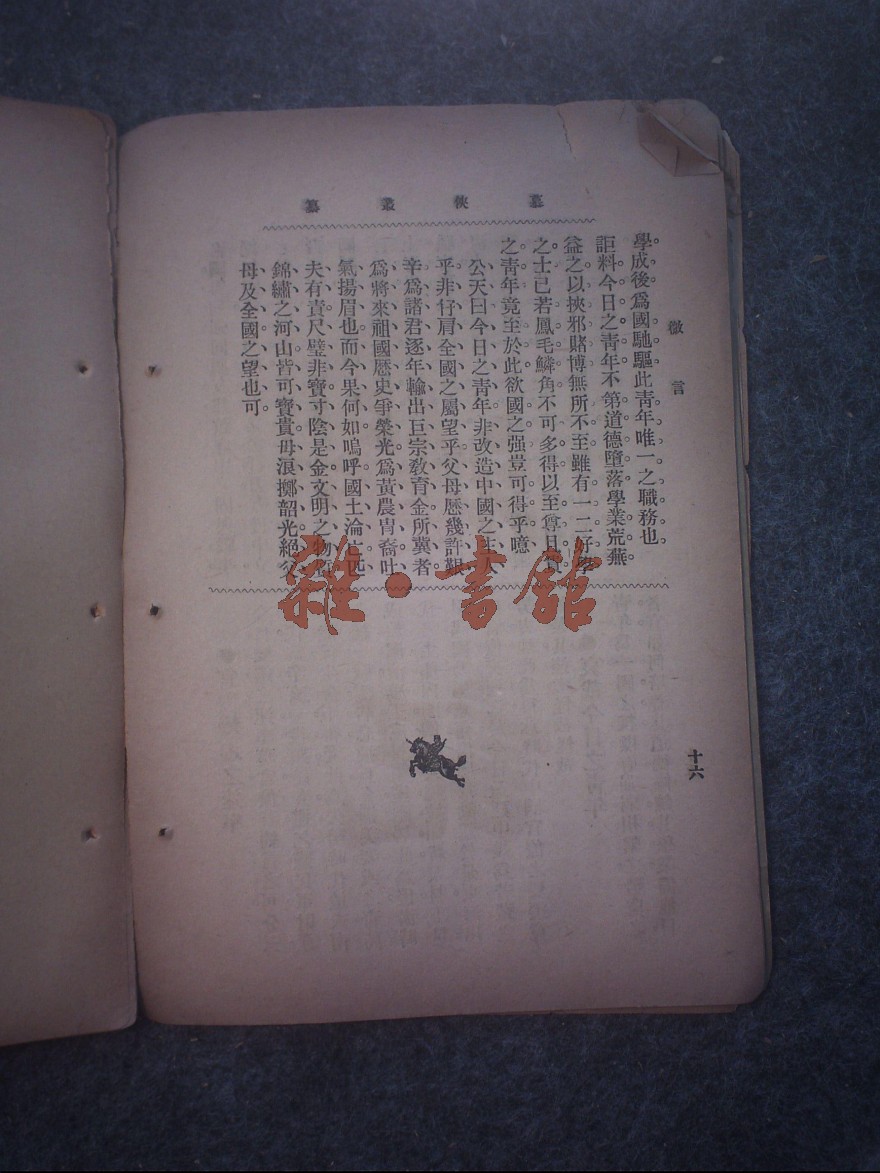 慕俠叢纂
微言
學成後爲國馳驅此靑年唯一之職務也
詎料今日之靑年不第道德墮落學業荒蕪
益之以挾邪賭博無所不至雖有一二好學
之士已若鳳毛鱗角不可多得以至尊且貴
之靑年竟至於此欲國之强豈可得乎噫
公天曰今日之靑年非改造中國之主人
乎非仔肩全國之屬望乎父母歷幾許艱
辛爲諸君逐年輸出巨宗敎育金所冀者
爲將來祖國歷史爭榮光爲黃農冑裔吐
氣揚眉也而今果何如嗚呼國土淪亡匹
夫有責尺璧非寶寸陰是金文明之物質
錦繡之河山皆可寶貴毋浪擲韶光絕父
母及全國之望也可
十六
雜·書館